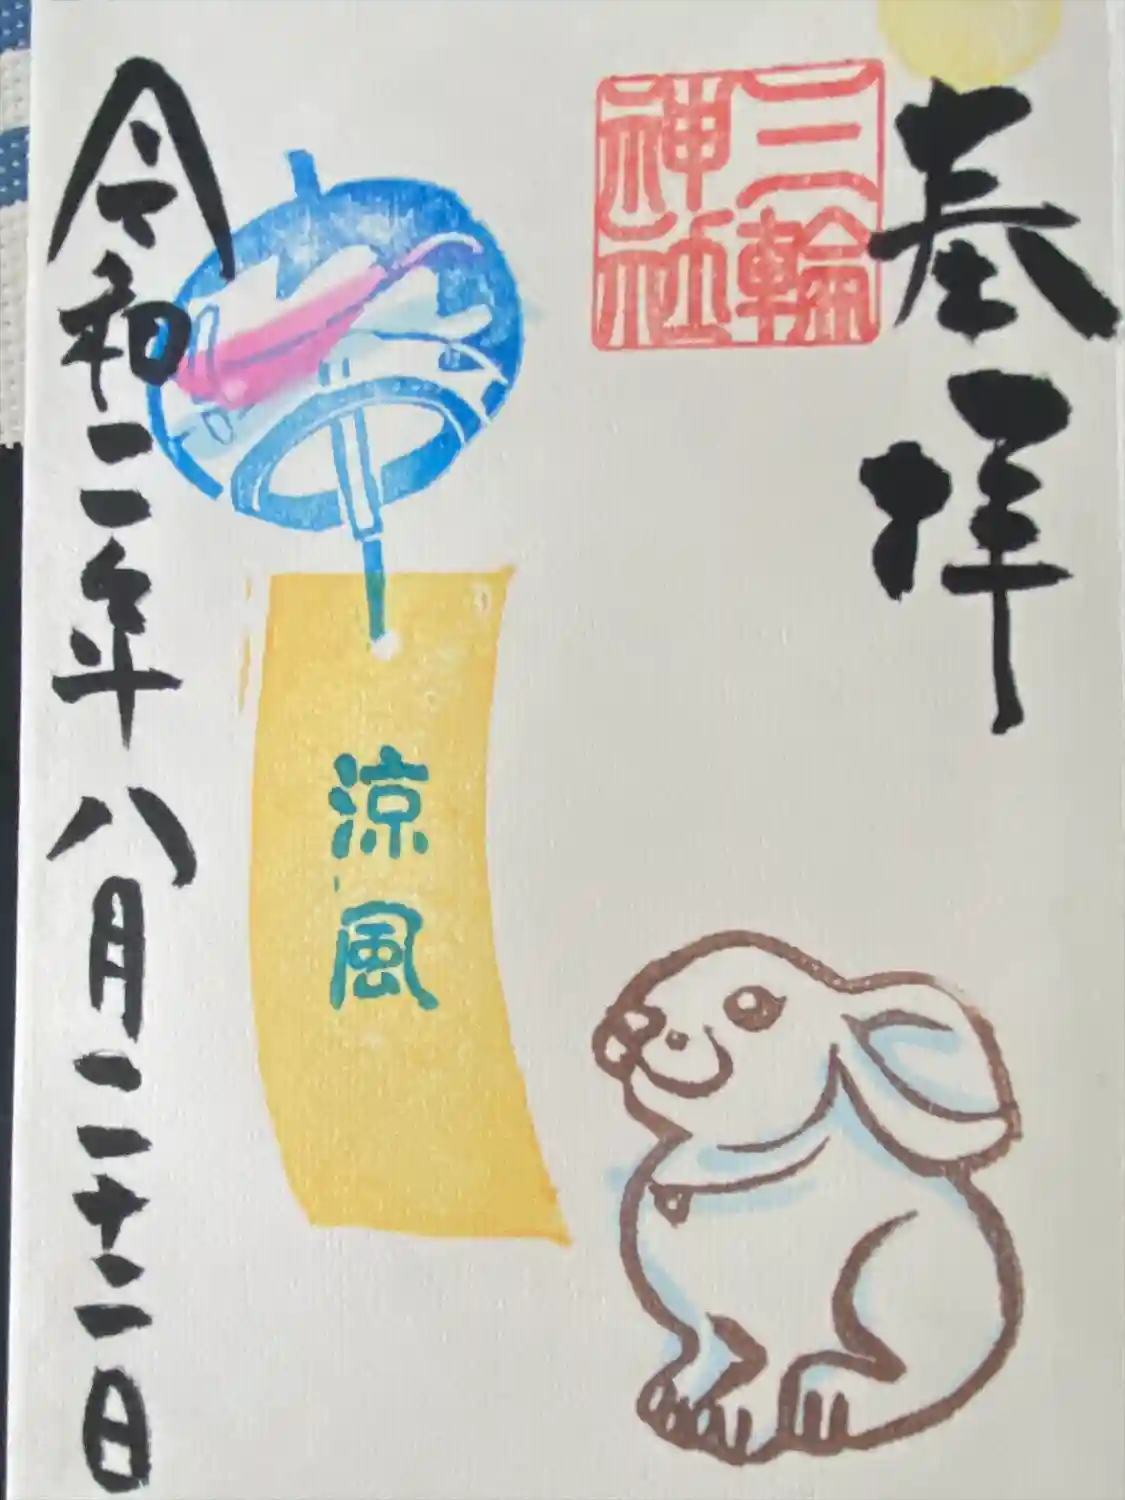 奉拝
三輪
神社
涼風
令和二年八月二十二日